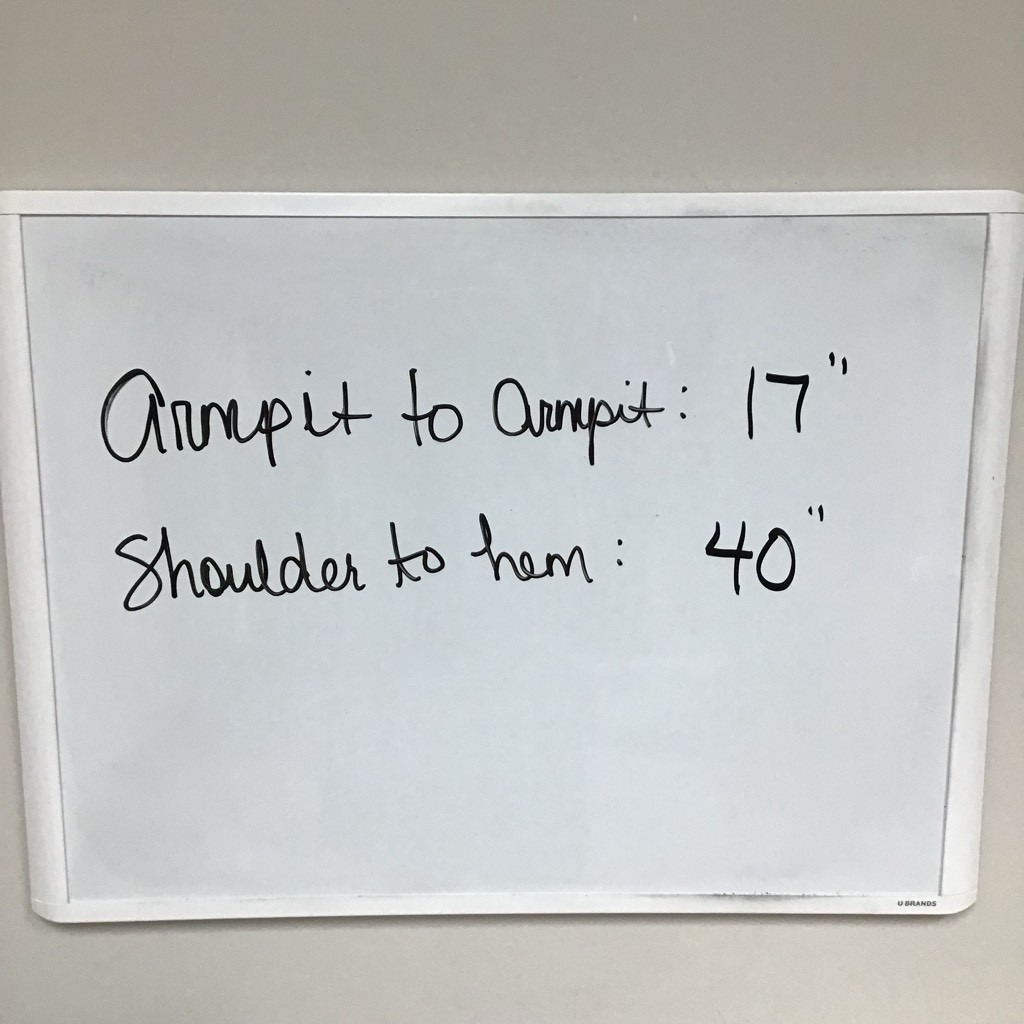 Armpit to Armpit: 17"
Shoulder to hem: 40"
U BRANDS